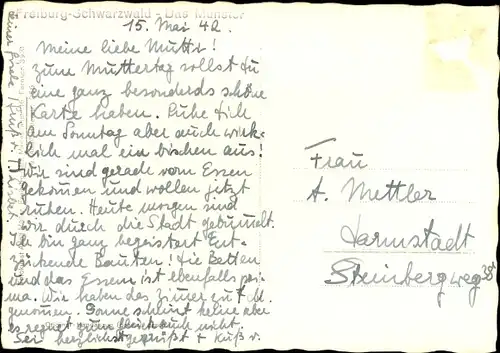 Freiburg-Schwarzwald - Das Münster
15. Mai 42.
Meine liebe Mutti!
Zum Muttertag sollst Du
eine ganz besonderds schöne
Karte haben. Ruhe Dich
am Sonntag aber auch wirk-
lich mal ein bischen aus!
Wir sind gerade vom Essen
gekommen und wollen jetzt
ruhen. Heute morgen sind
wir durch die Stadt gebummelt.
Ich bin ganz begeistert Ent-
zückende Bauten! Die Betten
und das Essen ist ebenfalls pri-
ma. Wir haben das Zimer zu 7 M.
genommen. Sonne scheint keine aber
es regnet auch nicht.
Sei herzlichst gegrüßt + Kuß v.
Frau
A. Mettler
Darmstadt
Steinbergweg 38